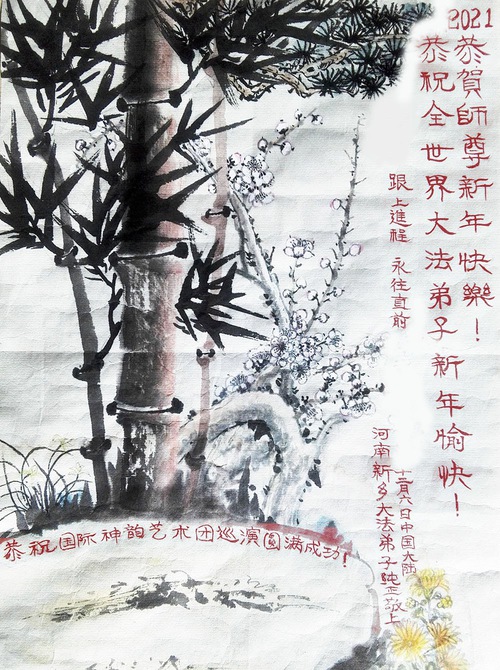 2021
恭賀師尊新年快樂！
恭祝全世界大法弟子新年愉快！
跟上進程 永往直前
十二月六日中国大陆
河南新乡大法弟子纯正敬上
恭祝国际神韵艺术团巡演圆满成功！